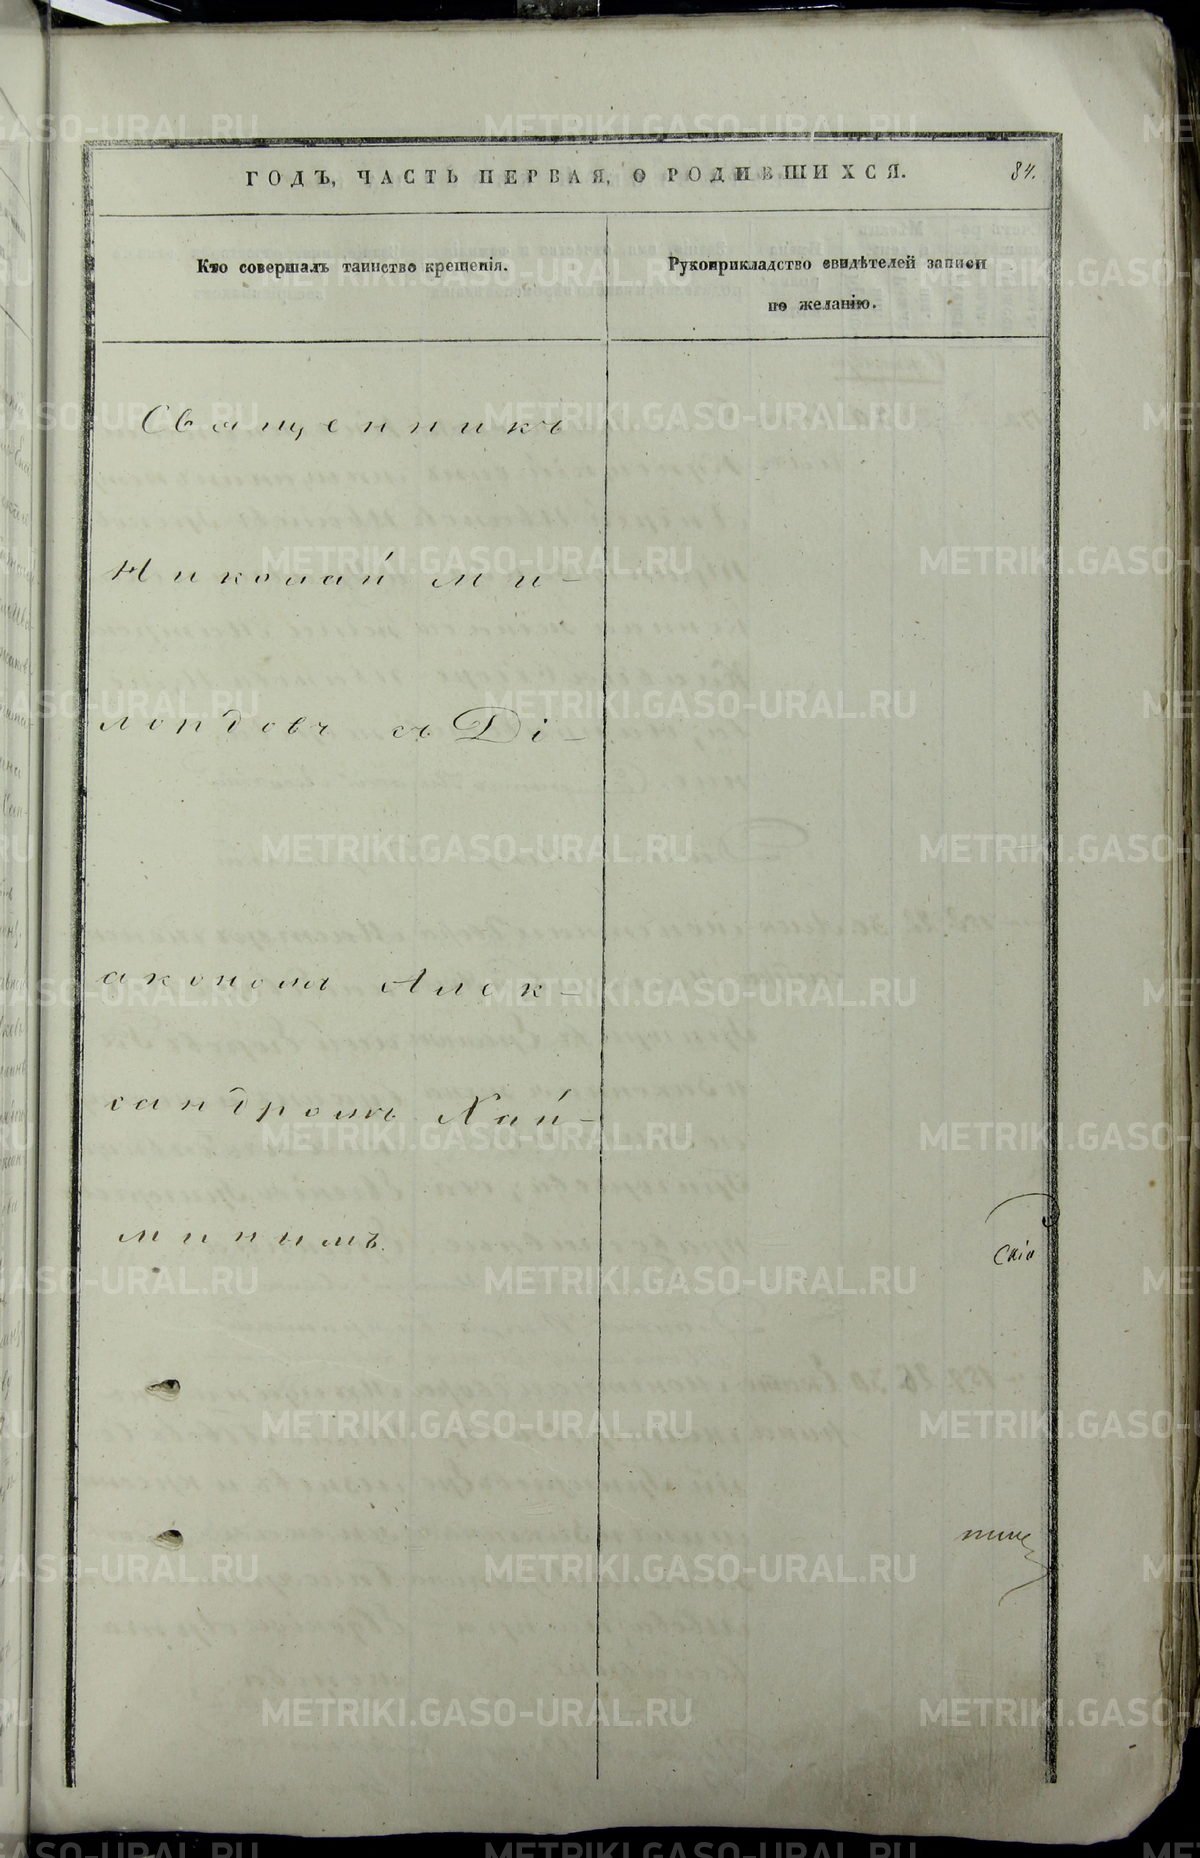 ГОДЪ, ЧАСТЬ ПЕРВАЯ, О РОДИВШИХСЯ.
84.
Кто совершалъ таинство крещенія.
Рукоприкладство свидѣтелей записи
по желанію.
Священникъ
Николай Ми-
лордовъ съ Ді-
акономъ Алек-
сандромъ Хай-
минымъ.
METRIKI.GASO-URAL.RU